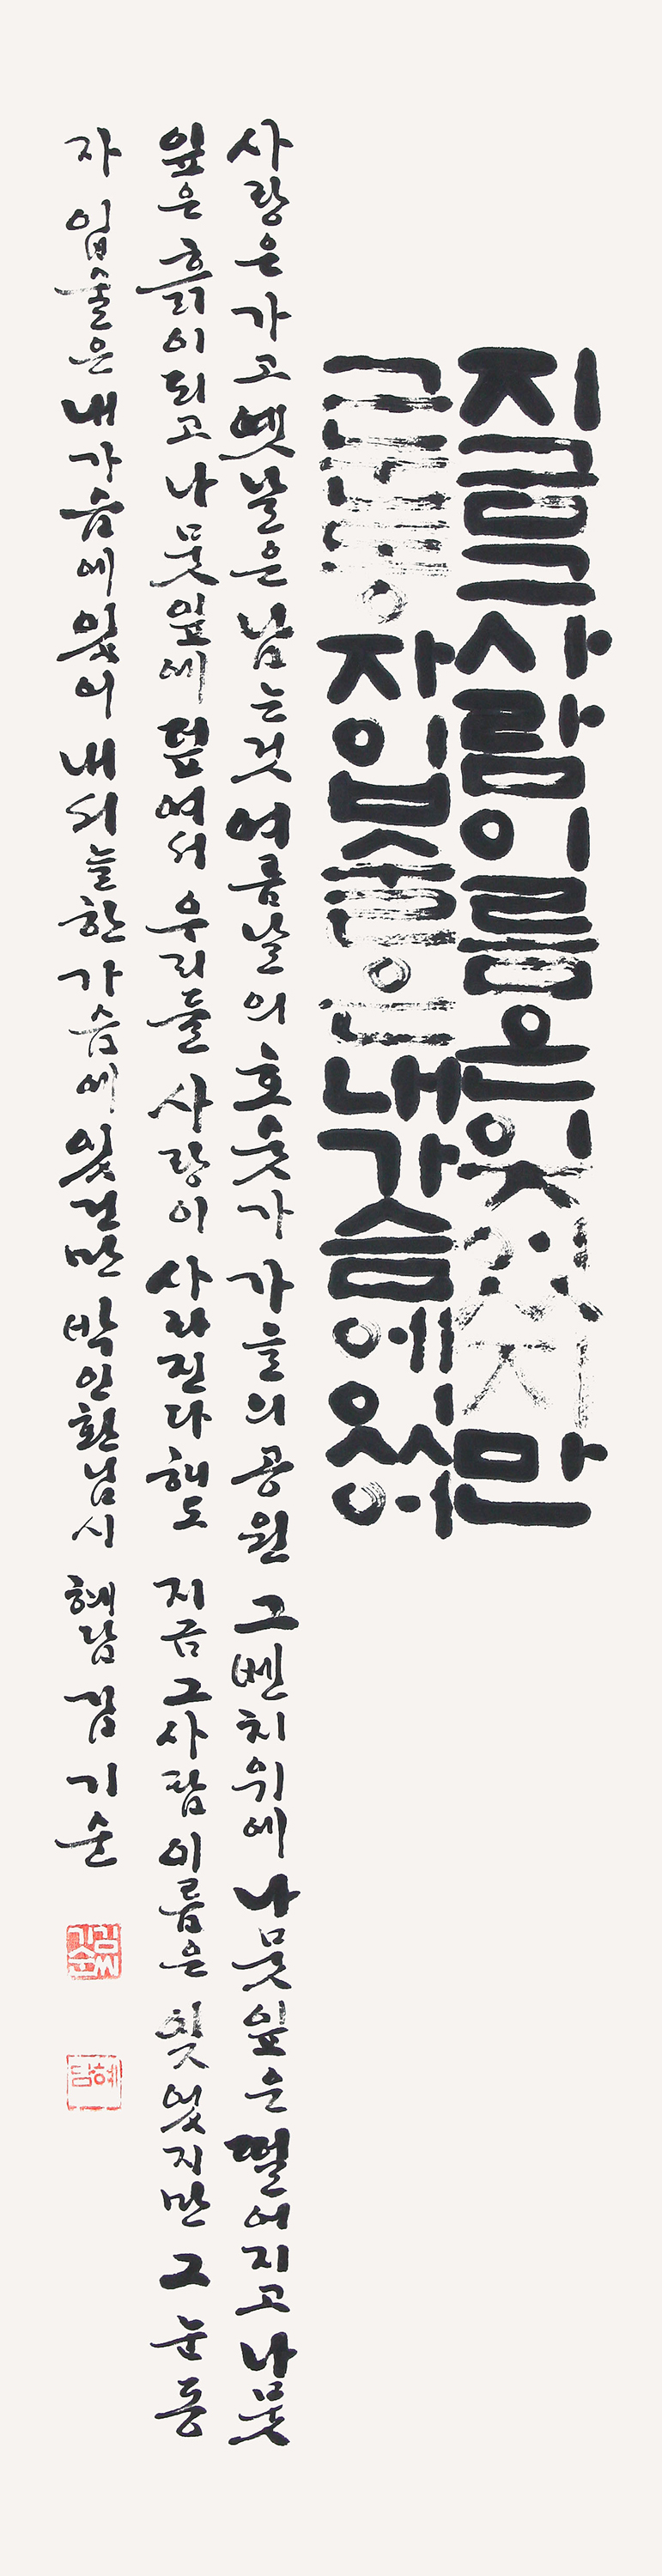 지금그사람이름은잊었지만
그눈동자입술은내가슴에있어
사랑은 가고 옛날은 남는것 여름날의 호숫가 가을의 공원 그벤치위에 나뭇잎은 떨어지고 나뭇
잎은 흙이되고 나뭇잎에 덮여서 우리들 사랑이 사라진다해도 지금 그사람 이름은 잊었지만 그 눈동
자 입술은 내가슴에 있어 내 서늘한 가슴에 있건만 박인환님시 혜담 김기순
혜담